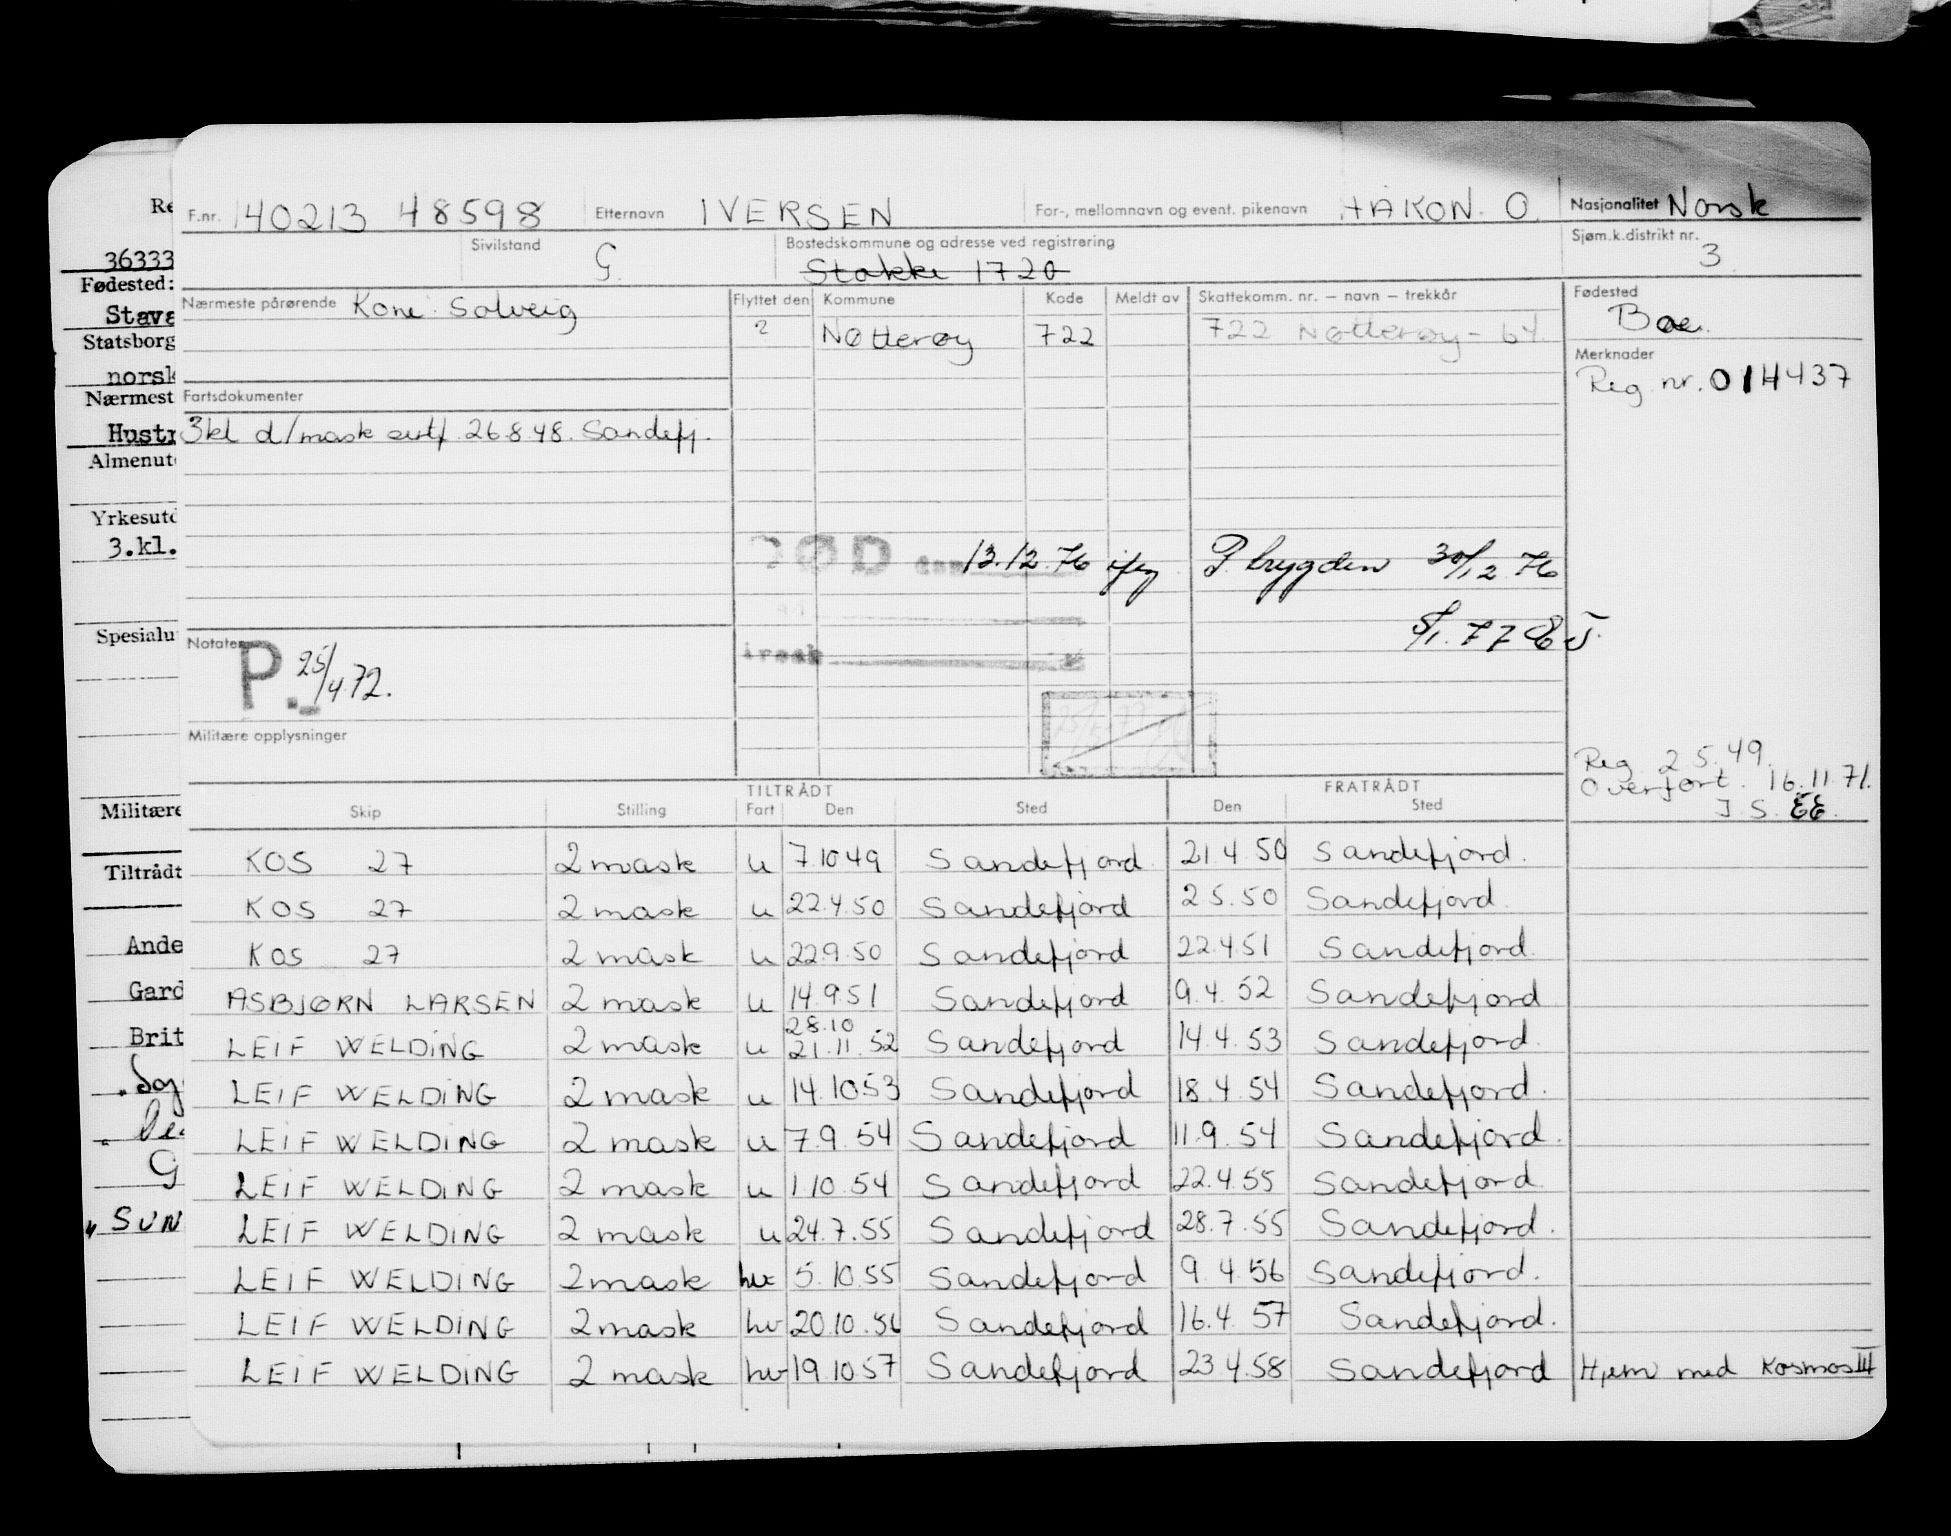 F.nr. 140213 48598 Etternavn IVERSEN For-, mellomnavn og event. pikenavn HÅKON. O. Nasjonalitet Norsk
Sivilstand G. Bostedskommune og adresse ved registrering Stokke 1720 Sjøm.k.distrikt nr. 3
Nærmeste pårørende Kone: Solveig Flyttet den Kommune Kode Meldt av Skattekomm. nr. – navn – trekkår Fødested
? Nøtterøy 722 722 Nøtterøy - 64. Boe.
Merknader
Reg. nr. 014437
Fartsdokumenter
3kl d/mask sertf. 26.8.48. Sandefj.
ØD 13.12.76 iflg P. trygden 30/12 76
5/1.77
Notater
P. 25/4.72.
Militære opplysninger
Reg. 2.5.49.
Overført. 16.11.71.
J.S. EE.
TILTRÅDT FRATRÅDT
Skip Stilling Fart Den Sted Den Sted
KOS 27 2 mask u 7.10 49 Sandefjord 21.4.50 Sandefjord.
KOS 27 2 mask u 22.4.50 Sandefjord 2.5.50 Sandefjord.
KOS 27 2 mask u 22.9.50 Sandefjord 22.4.51 Sandefjord.
ASBJØRN LARSEN 2 mask u 14.9.51 Sandefjord 9.4.52 Sandefjord
28.10
LEIF WELDING 2 mask u 21.11.52 Sandefjord 14.4.53 Sandefjord.
LEIF WELDING 2 mask u 14.10 53 Sandefjord 18.4.54 Sandefjord.
LEIF WELDING 2 mask u 7.9.54 Sandefjord 11.9.54 Sandefjord.
LEIF WELDING 2 mask u 1.10.54 Sandefjord 22.4.55 Sandefjord.
LEIF WELDING 2 mask u 24.7.55 Sandefjord 28.7.55 Sandefjord.
LEIF WELDING 2 mask hv 5.10.55 Sandefjord 9.4.56 Sandefjord.
LEIF WELDING 2 mask hv 20.10.56 Sandefjord 16.4.57 Sandefjord.
LEIF WELDING 2 mask hv 19.10.57 Sandefjord 23.4.58 Sandefjord Hjem med Kosmos III
Re
36333
Fødested:
Stava
Statsborg
norsk
Nærmest
Hustr
Almenut
Yrkesutd
3.kl.
Spesialu
Militære
Tiltrådt
Ande
Gard
Brit
G
" SUN